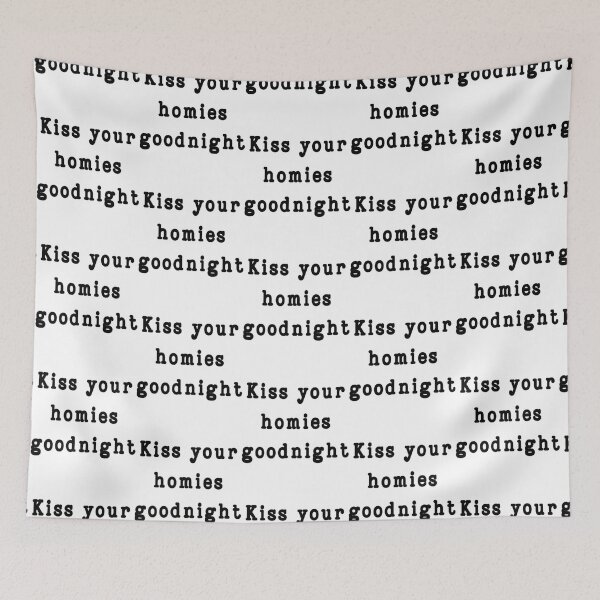 goodnight Kiss your goodnight Kiss your goodnight
homies homies
Kiss your goodnight Kiss your goodnight Kiss your g
homies homies homies
goodnight Kiss your goodnight Kiss your goodnight
homies homies
Kiss your goodnight Kiss your goodnight Kiss your g
homies homies homies
goodnight Kiss your goodnight Kiss your goodnight
homies homies
Kiss your goodnight Kiss your goodnight Kiss your g
homies homies homies
goodnight Kiss your goodnight Kiss your goodnight
homies homies
Kiss your goodnight Kiss your goodnight Kiss your g